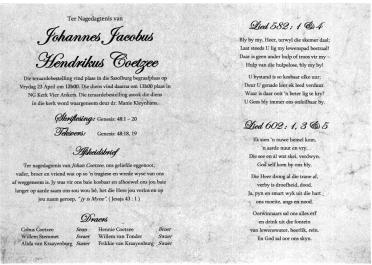 Ter Nagedagtenis van
Johannes Jacobus
Hendrikus Coetzee
Die teraardebestelling vind plaas in die Sandburg begraafplaas op
Vrydag 23 April om 12h00. Die diens vind daarna om 13h00 plaas in
NG Kerk Vier Ankers. Die teraardebestelling asook die diens
in die kerk word waargeneem deur dr. Manie Kleynhans.
Skriflesing: Genesis: 48:1 – 20
Teksvers: Genesis: 48:18, 19
Afskeidsbrief
Ter nagedagtenis van Johan Coetzee, ons geliefde eggenoot,
vader, broer en vriend was op so 'n tragiese en wrede wyse van ons
af weggeneem is. Jy was vir ons baie kosbaar en alhoewel ons jou baie
langer op aarde saam ons sou wou hê, het die Here jou verkies en op
jou naam geroep, "jy is Myne". ( Jesaja 43 : 1 )
Draers
Cobus Coetzee Seun Hennie Coetzee Broer
Willem Stemmet Swaer Willem van Tonder Swaer
Alida van Kraayenburg Suster Fekkie van Kraayenburg Swaer
Lied 582 : 1 & 4
Bly by my, Heer, terwyl die skemer daal;
Laat steeds U lig my lewenspad bestraal!
Daar is geen ander hulp of troos vir my –
Hulp van die hulpelose, bly by my!
U bystand is so kosbaar elke uur;
Deur U genade hier ek leed verduur.
Waar is daar ook 'n beter lig te kry?
U Gees bly immer ons onfeilbaar by.
Lied 602 : 1, 3 & 5
Ek sien 'n nuwe hemel kom,
'n aarde nuut en vry.
Die see en al wat skei, verdwyn.
God self kom by ons bly.
Die Heer dwing al die trane af,
verby is droefheid, dood.
Ja, pyn en smart wyk uit die hart ;
ons moeite, angs en nood.
Oorwinnaars sal ons alles erf
en drink uit die fontein
van lewenswater, heerlik, rein.
En God sal oor ons skyn.